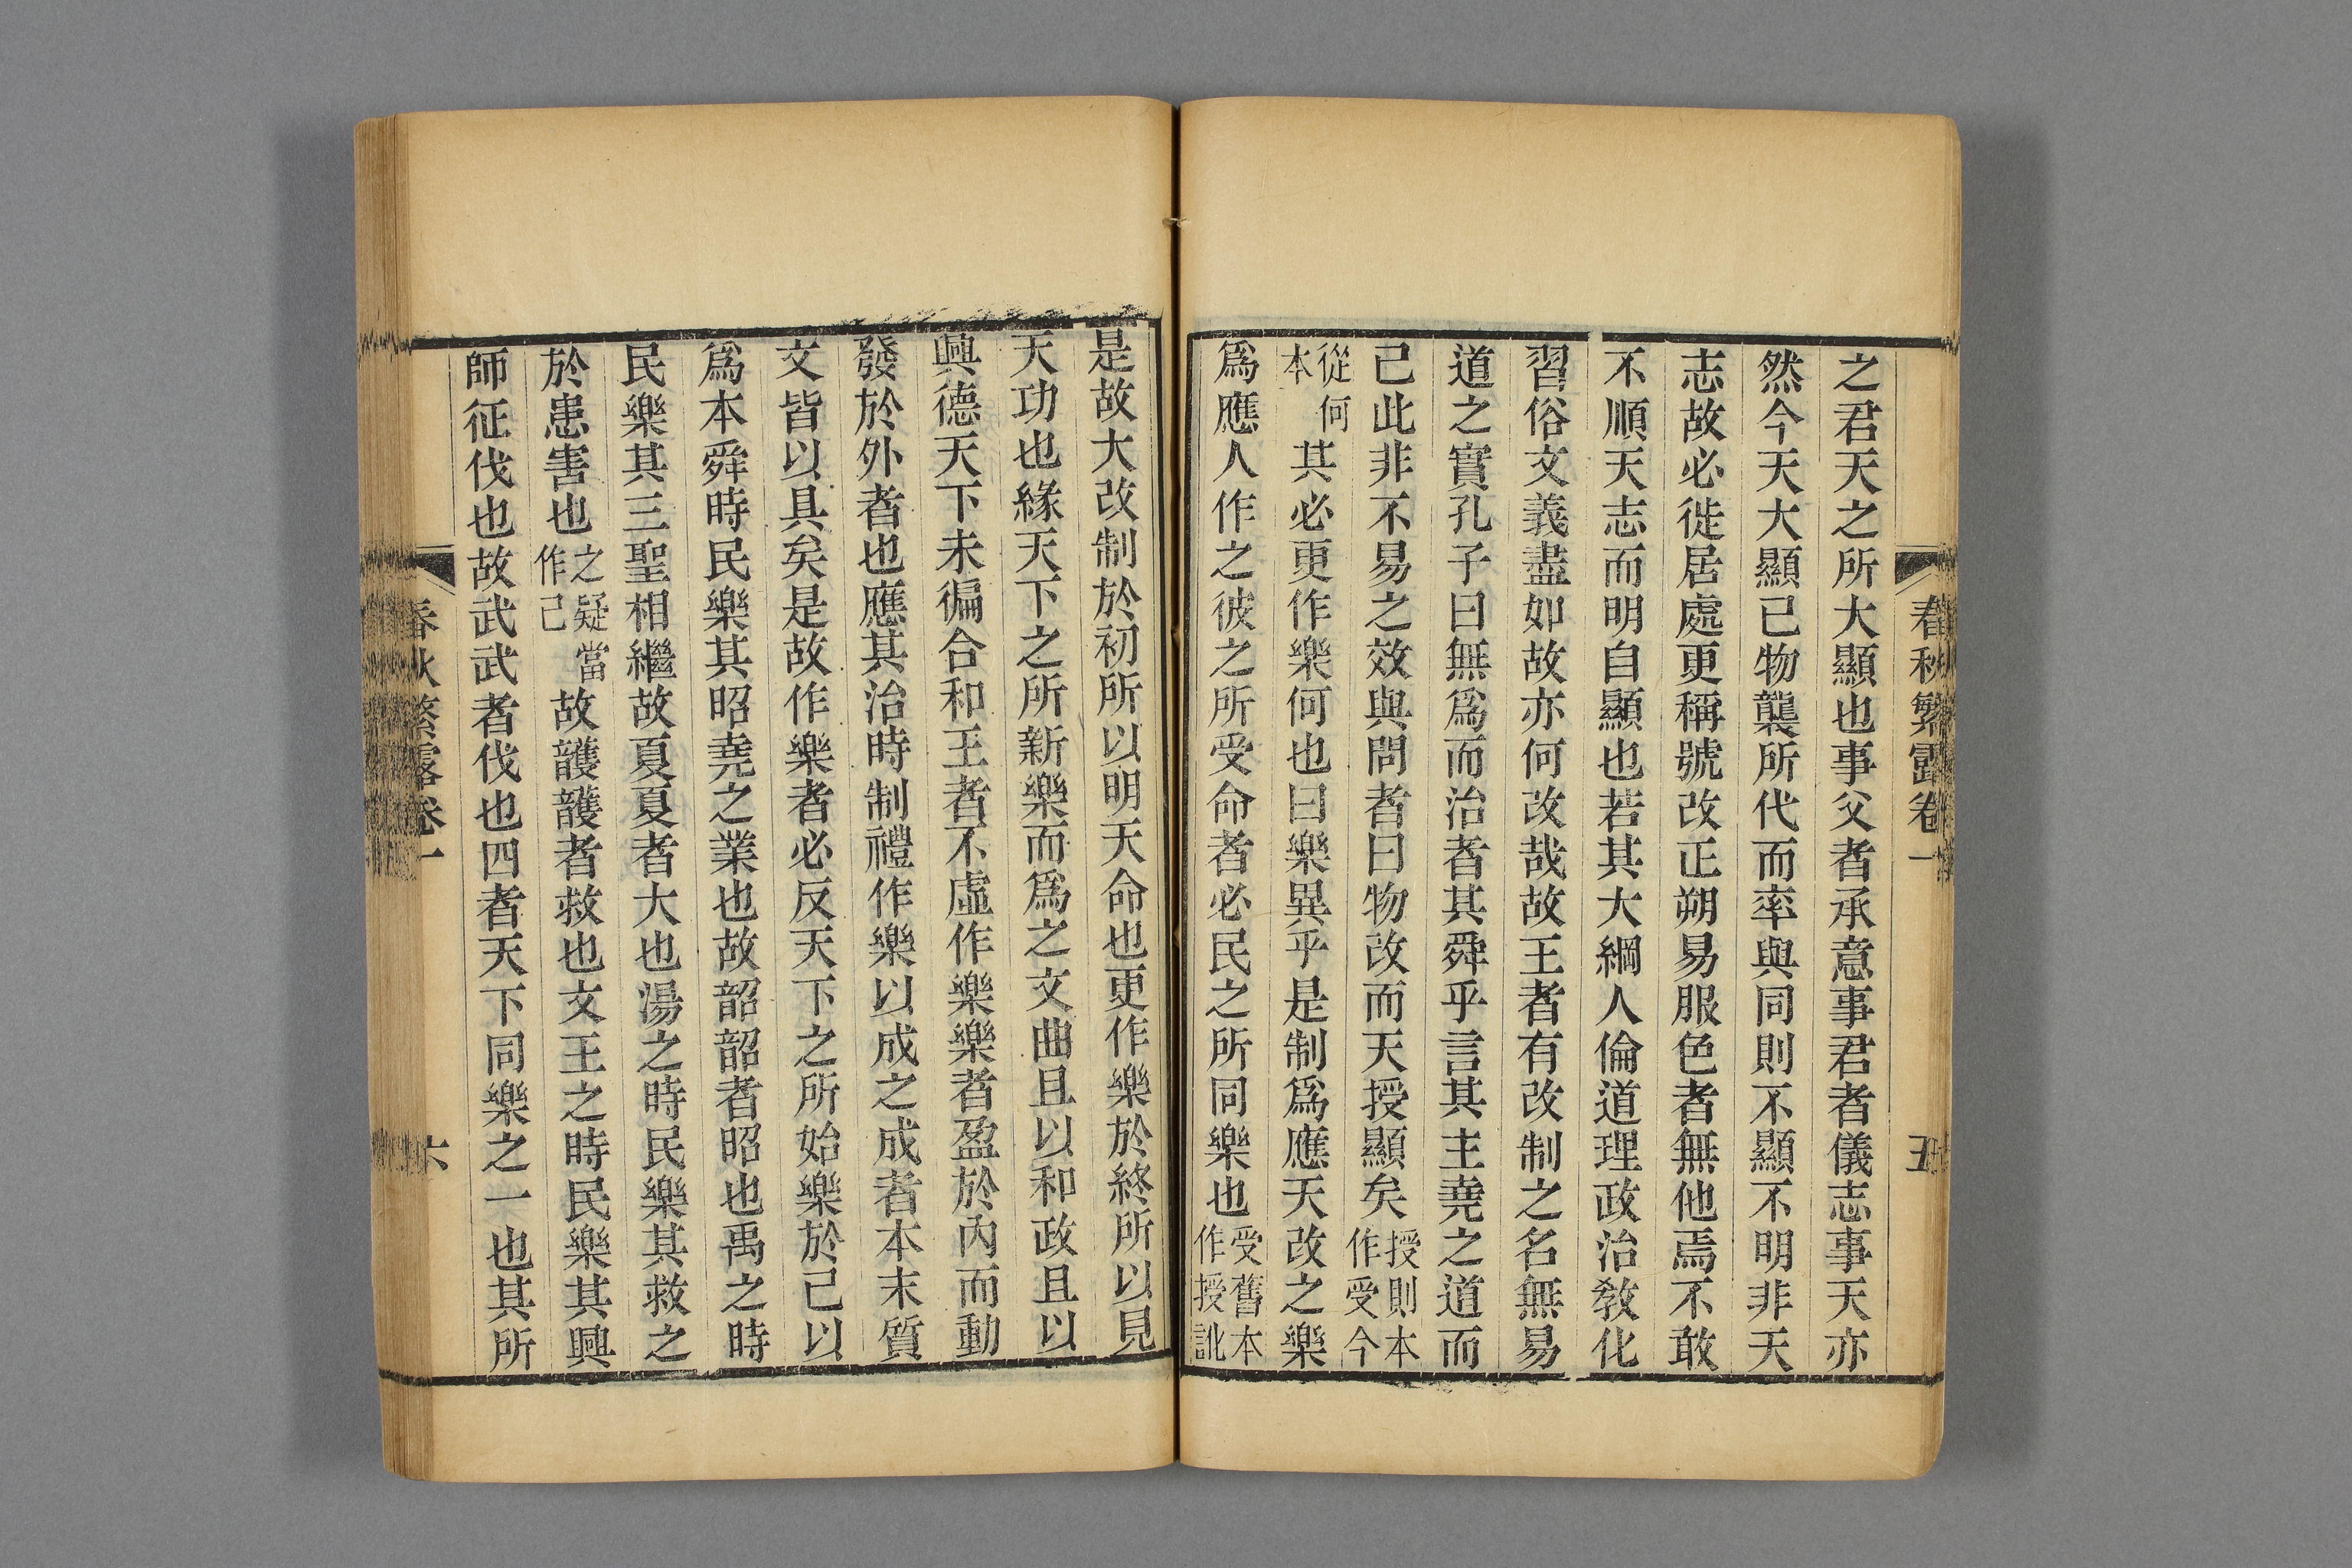 春秋繁露卷一
五
之君天之所大顯也事父者承意事君者儀志事天亦
然今天大顯己物襲所代而率與同則不顯不明非天
志故必徙居處更稱號改正朔易服色者無他焉不敢
不順天志而明自顯也若其大綱人倫道理政治教化
習俗文義盡如故亦何改哉故王者有改制之名無易
道之實孔子曰無爲而治者其舜乎言其主堯之道而
己此非不易之效與問者曰物改而天授顯矣授則本作受今
從何本其必更作樂何也曰樂異乎是制爲應天改之樂
爲應人作之彼之所受命者必民之所同樂也受舊本作授訛
是故大改制於初所以明天命也更作樂於終所以見
天功也緣天下之所新樂而爲之文曲且以和政且以
興德天下未徧合和王者不虛作樂樂者盈於內而動
發於外者也應其治時制禮作樂以成之成者本末質
文皆以具矣是故作樂者必反天下之所始樂於己以
爲本舜時民樂其昭堯之業也故韶韶者昭也禹之時
民樂其三聖相繼故夏夏者大也湯之時民樂其救之
於患害也之疑當作己故頀頀者救也文王之時民樂其興
師征伐也故武武者伐也四者天下同樂之一也其所
春秋繁露卷一
六